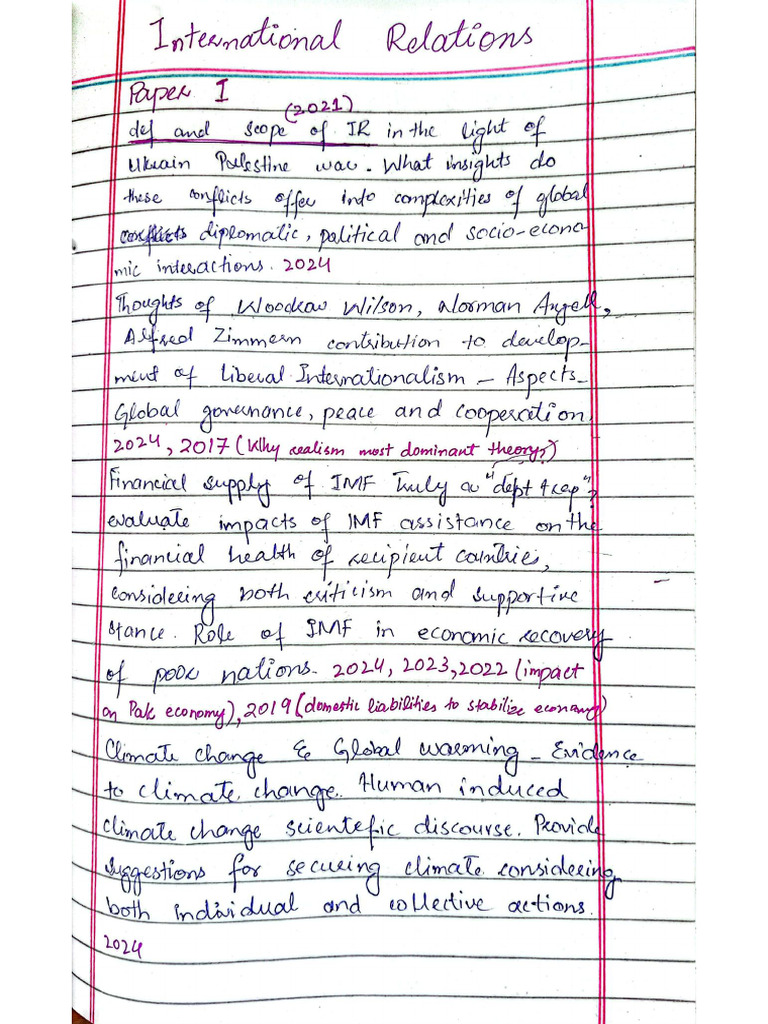 International Relations
Paper I
(2021)
def and scope of IR in the light of
Ukrain Palestine war. What insights do
these conflicts offer into complexities of global
diplomatic, political and socio-econo-
mic interactions. 2024
Thoughts of Woodrow Wilson, Norman Angell,
Alfred Zimmern contribution to develop-
ment of Liberal Internationalism - Aspects-
Global governance, peace and cooperation
2024, 2017 (Why realism most dominant theory?)
Financial supply of IMF Truly a "dept trap"?
evaluate impacts of IMF assistance on the
financial health of recipient countries,
considering both criticism and supportive
stance. Role of IMF in economic recovery
of poor nations. 2024, 2023, 2022 (impact
on Pak economy), 2019 (domestic liabilities to stabilize economy)
Climate change & Global warming - Evidence
to climate change. Human induced
climate change scientefic discourse. Provide
suggestions for securing climate considering
both individual and collective actions.
2024